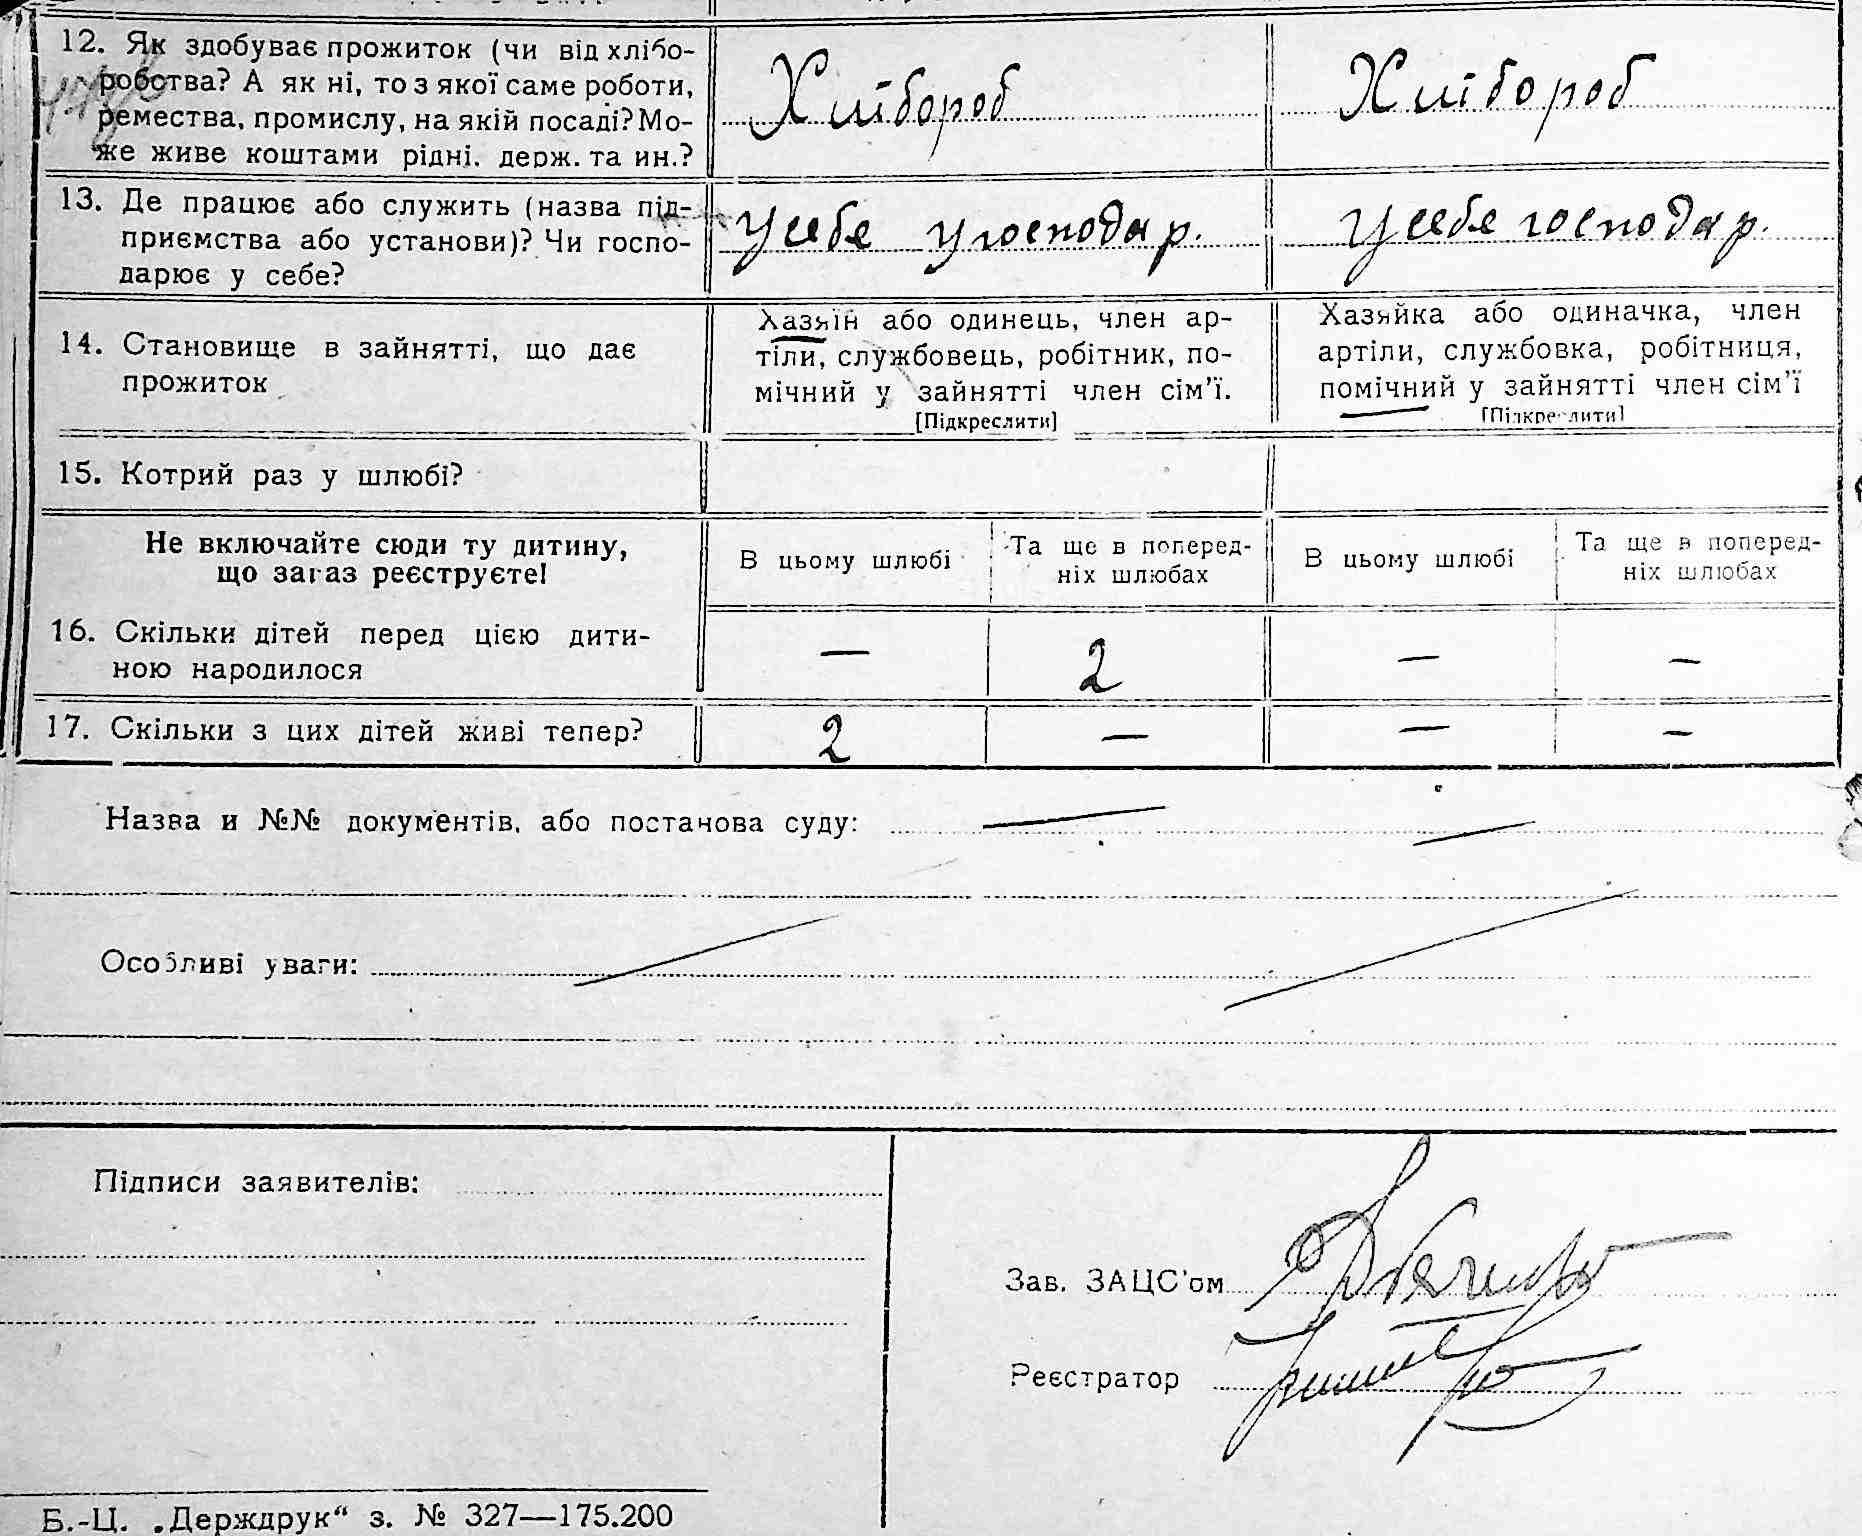 12. Як здобуває прожиток (чи від хлібо-
робства? А як ні, то з якої саме роботи,
ремества, промислу, на якій посаді? Мо-
же живе коштами рідні, держ. та ин.?
Хлібороб
Хлібороб
13. Де працює або служить (назва під-
приємства або установи)? Чи госпо-
дарює у себе?
У себе у господар.
У себе господар.
14. Становище в зайнятті, що дає
прожиток
Хазяїн або одинець, член ар-
тіли, службовець, робітник, по-
мічний у зайнятті член сім'ї.
[Підкреслити]
Хазяйка або одиначка, член
артіли, службовка, робітниця,
помічний у зайнятті член сім'ї
[Підкреслити]
15. Котрий раз у шлюбі?
Не включайте сюди ту дитину,
що зараз реєструєте!
В цьому шлюбі
Та ще в поперед-
ніх шлюбах
В цьому шлюбі
Та ще в поперед-
ніх шлюбах
16. Скільки дітей перед цією дити-
ною народилося
— 2 — —
17. Скільки з цих дітей живі тепер?
2 — — —
Назва и №№ документів, або постанова суду: — —
Особливі уваги:
Підписи заявителів:
Зав. ЗАЦС'ом
Реєстратор
Б.-Ц. „Держдрук“ з. № 327—175.200